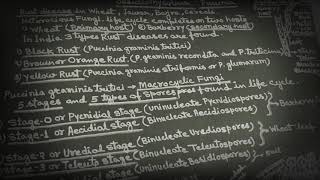 Rust disease in Wheat, Jowar, Bajra, Cereals
Heteroecious Fungi - life cycle completes on two hosts
① Wheat (Primary host) ② Barberry (Secondary host)
In India 3 types Rust diseases are found.
1) Black Rust (Puccinia graminis tritici)
2) Brown or Orange Rust (P. graminis recondita and P. triticina)
3) Yellow Rust (Puccinia striiformis or P. glumarum)
Puccinia graminis tritici → Macrocyclic Fungi
5 stages and 5 types of Spores found in life cycle.
Stage-0 or Pycnidial Stage (Uninucleate Pycnidiospores)
Stage-1 or Aecidial Stage (Binucleate Aecidiospores) Barberry
Stage-2 or Uredial Stage (Binucleate Urediospores)
Stage-3 or Teleuto Stage (Binucleate Teleutospores) Wheat
(Uninucleate Basidiospores) → Soil